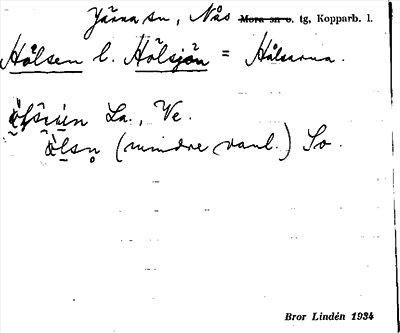 Järna sn, Nås Mora sn o. tg, Kopparb. l.
Hålsen l. Hålsjön = Hålsarna.
La., Ve.
(mindre vanl.) So.
Bror Lindén 1934